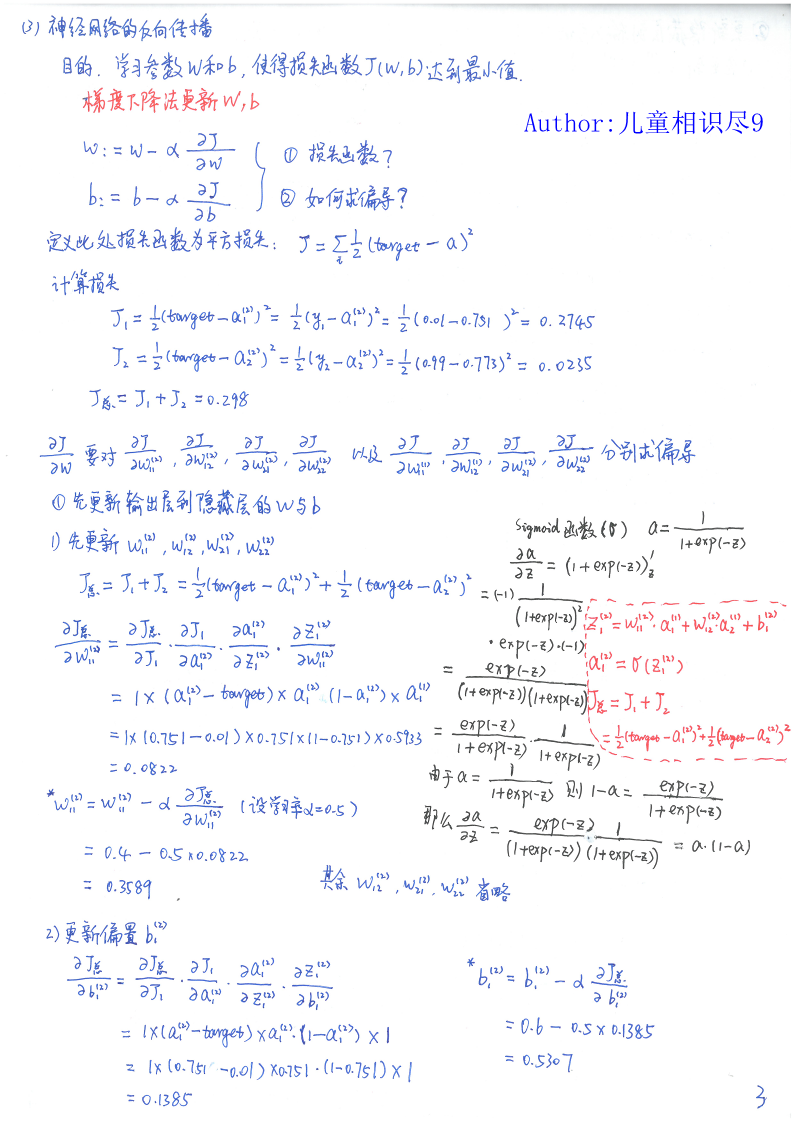 (3) 神经网络的反向传播
目的. 学习参数W和b, 使得损失函数J(W,b)达到最小值.
梯度下降法更新W,b
Author:儿童相识尽9
W:=W-α ∂J/∂W ① 损失函数?
b:=b-α ∂J/∂b ② 如何求偏导?
定义此处损失函数为平方损失: J=∑_i 1/2(target-a)²
计算损失
J₁=1/2(target-a₁⁽²⁾)²=1/2(y₁-a₁⁽²⁾)²=1/2(0.01-0.751 )²=0.2745
J₂=1/2(target-a₂⁽²⁾)²=1/2(y₂-a₂⁽²⁾)²=1/2(0.99-0.773)²=0.0235
J总=J₁+J₂=0.298
∂J/∂W 要对 ∂J/∂W₁₁⁽²⁾, ∂J/∂W₁₂⁽²⁾, ∂J/∂W₂₁⁽²⁾, ∂J/∂W₂₂⁽²⁾ 以及 ∂J/∂W₁₁⁽¹⁾, ∂J/∂W₁₂⁽¹⁾, ∂J/∂W₂₁⁽²⁾, ∂J/∂W₂₂⁽²⁾ 分别求偏导
① 先更新输出层到隐藏层的W与b
1) 先更新 W₁₁⁽²⁾, W₁₂⁽²⁾, W₂₁⁽²⁾, W₂₂⁽²⁾
J总=J₁+J₂=1/2(target-a₁⁽²⁾)²+1/2(target-a₂⁽²⁾)²
∂J总/∂W₁₁⁽²⁾=∂J总/∂J₁·∂J₁/∂a₁⁽²⁾·∂a₁⁽²⁾/∂z₁⁽²⁾·∂z₁⁽²⁾/∂W₁₁⁽²⁾
=1×(a₁⁽²⁾-target)×a₁⁽²⁾·(1-a₁⁽²⁾)×a₁⁽¹⁾
=1×(0.751-0.01)×0.751×(1-0.751)×0.5933
=0.0822
*W₁₁⁽²⁾=W₁₁⁽²⁾-α ∂J总/∂W₁₁⁽²⁾ (设学习率α=0.5)
=0.4-0.5×0.0822
=0.3589
其余 W₁₂⁽²⁾, W₂₁⁽²⁾, W₂₂⁽²⁾ 省略
Sigmoid函数(σ) a=1/(1+exp(-z))
∂a/∂z=(1+exp(-z))'_z
=(-1) 1/(1+exp(-z))²
·exp(-z)·(-1)
=exp(-z)/((1+exp(-z))(1+exp(-z)))
=exp(-z)/(1+exp(-z))·1/(1+exp(-z))
由于a=1/(1+exp(-z)) 则 1-a=exp(-z)/(1+exp(-z))
那么 ∂a/∂z=exp(-z)/(1+exp(-z)) 1/(1+exp(-z))=a·(1-a)
z₁⁽²⁾=W₁₁⁽²⁾·a₁⁽¹⁾+W₁₂⁽²⁾·a₂⁽¹⁾+b₁⁽²⁾
a₁⁽²⁾=σ(z₁⁽²⁾)
J总=J₁+J₂
=1/2(target-a₁⁽²⁾)²+1/2(target-a₂⁽²⁾)²
2) 更新偏置 b₁⁽²⁾
∂J总/∂b₁⁽²⁾=∂J总/∂J₁·∂J₁/∂a₁⁽²⁾·∂a₁⁽²⁾/∂z₁⁽²⁾·∂z₁⁽²⁾/∂b₁⁽²⁾
=1×(a₁⁽²⁾-target)×a₁⁽²⁾·(1-a₁⁽²⁾)×1
=1×(0.751-0.01)×0.751·(1-0.751)×1
=0.1385
*b₁⁽²⁾=b₁⁽²⁾-α ∂J总/∂b₁⁽²⁾
=0.6-0.5×0.1385
=0.5307
3